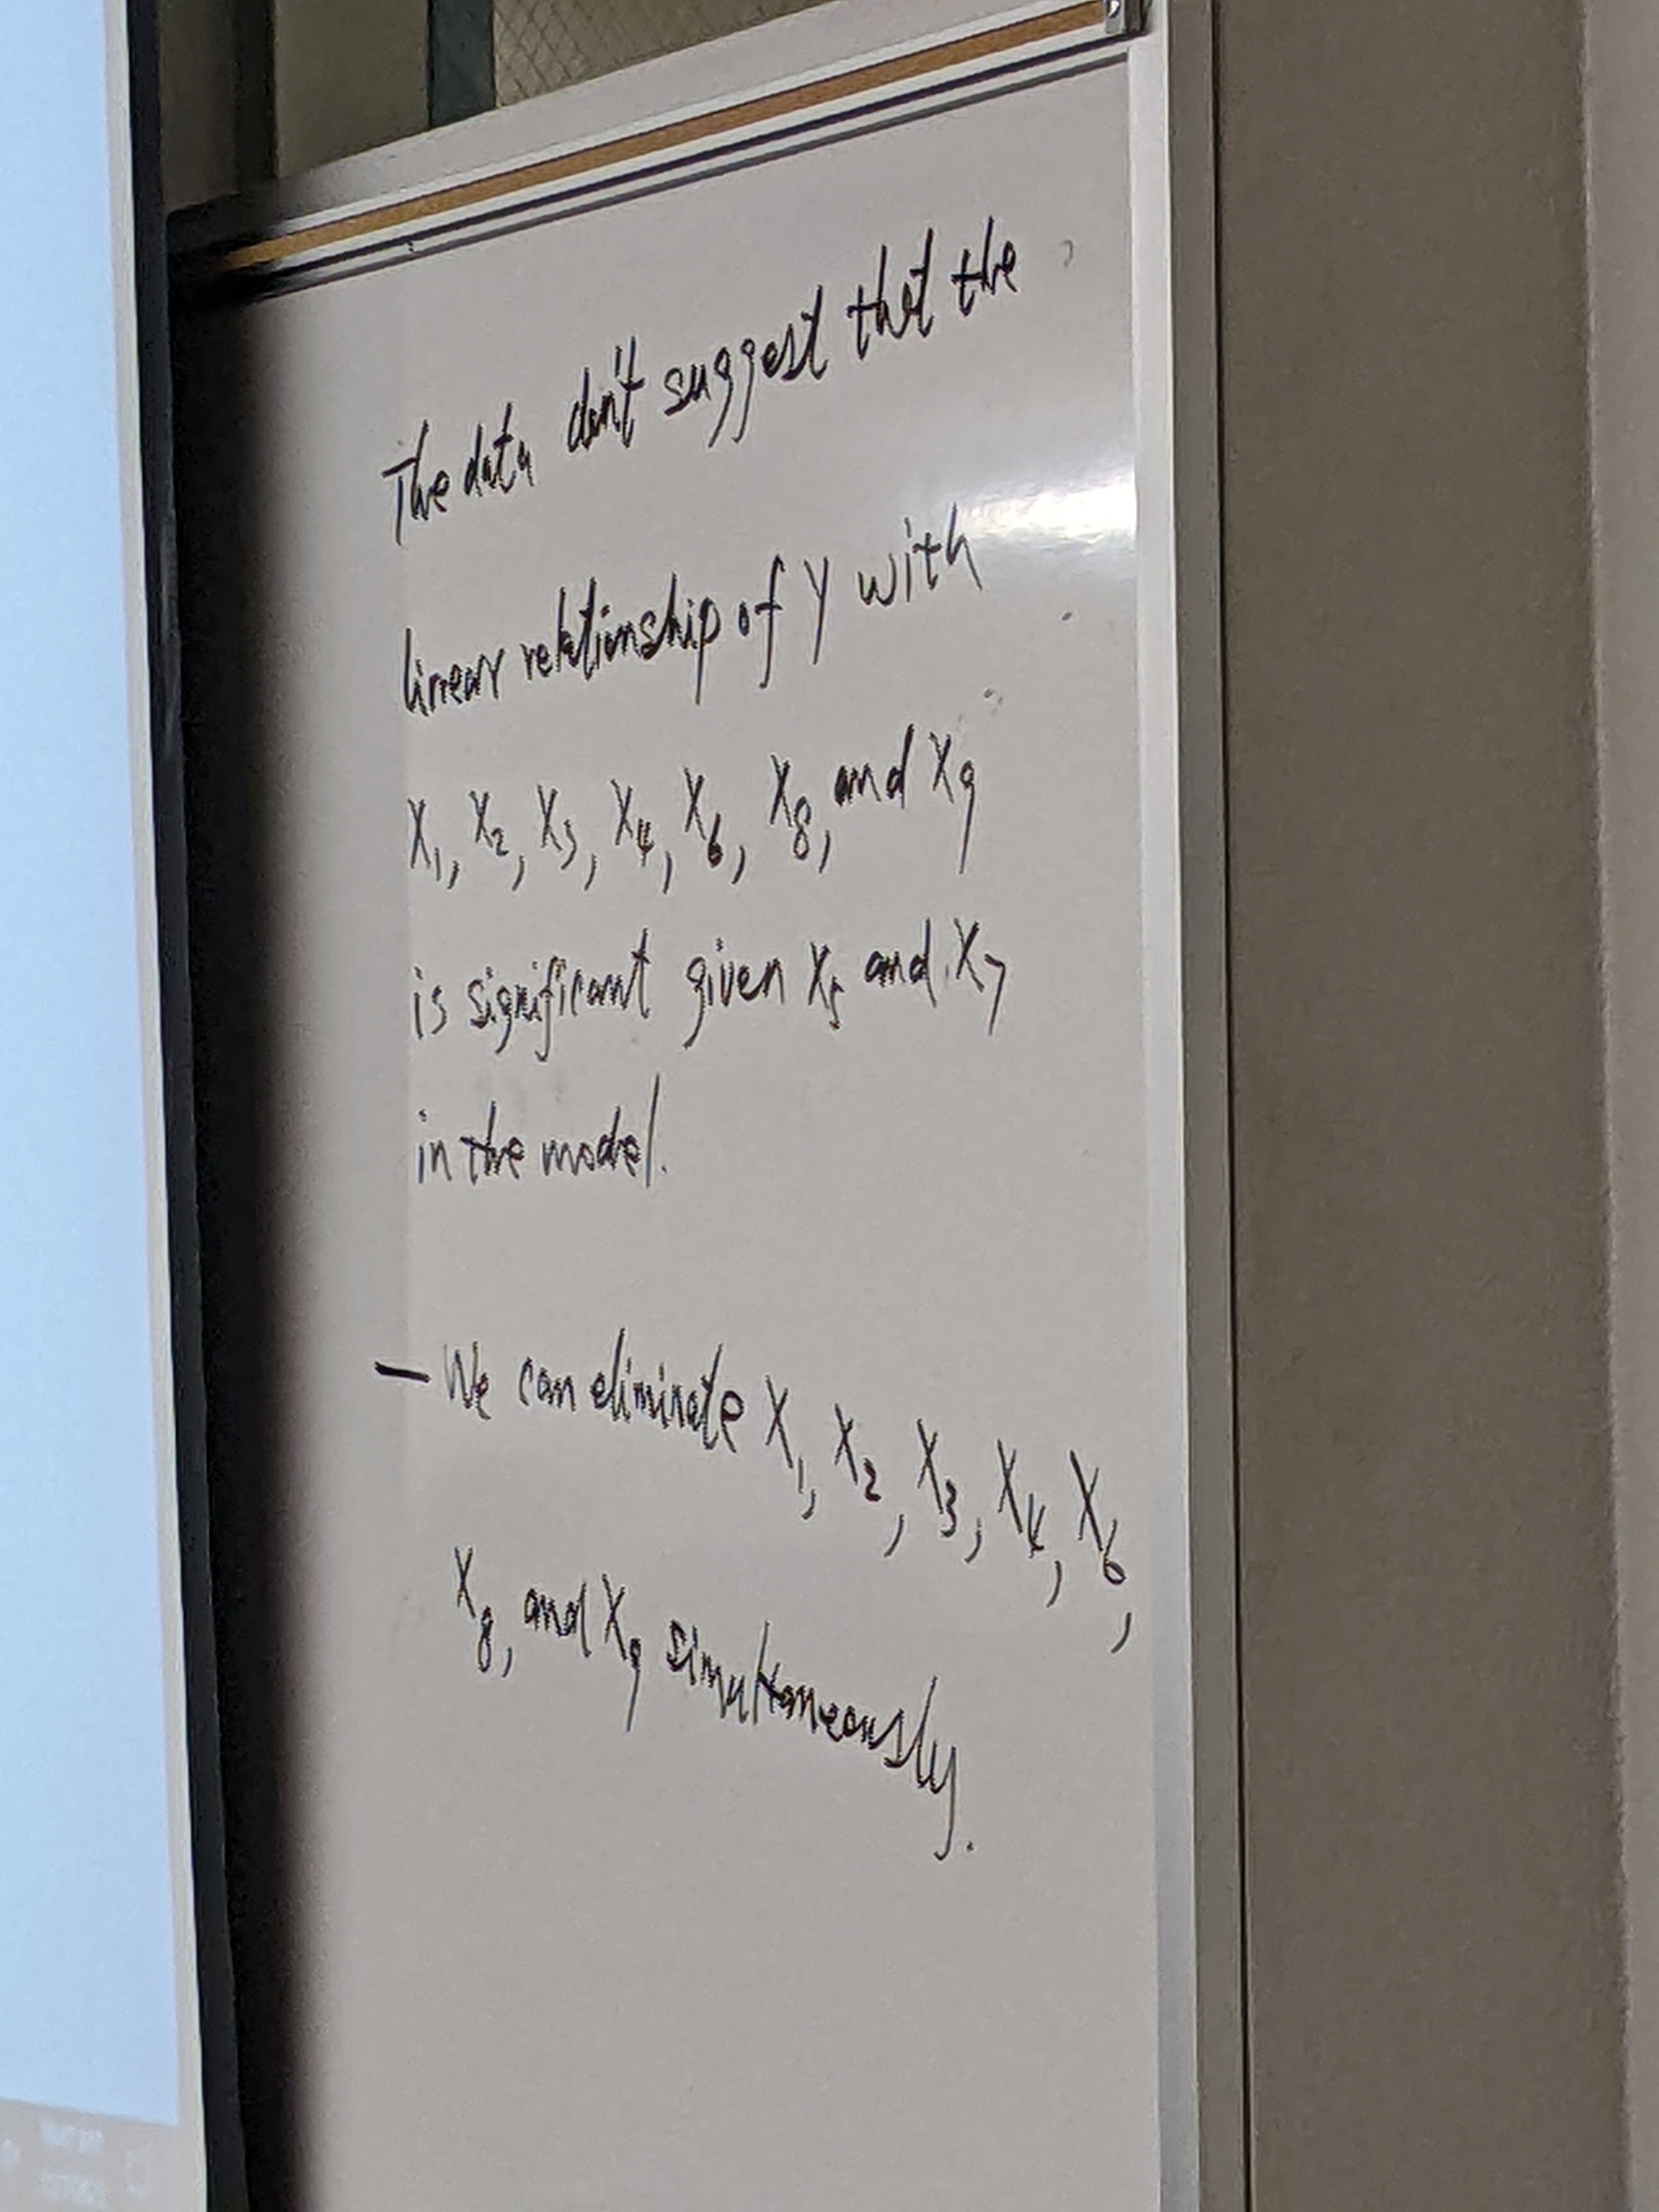 The data don't suggest that the
linear relationship of Y with
X₁, X₂, X₃, X₄, X₆, X₈, and X₉
is significant given X₅ and X₇
in the model.
— We can eliminate X₁, X₂, X₃, X₄, X₆,
X₈, and X₉ simultaneously.